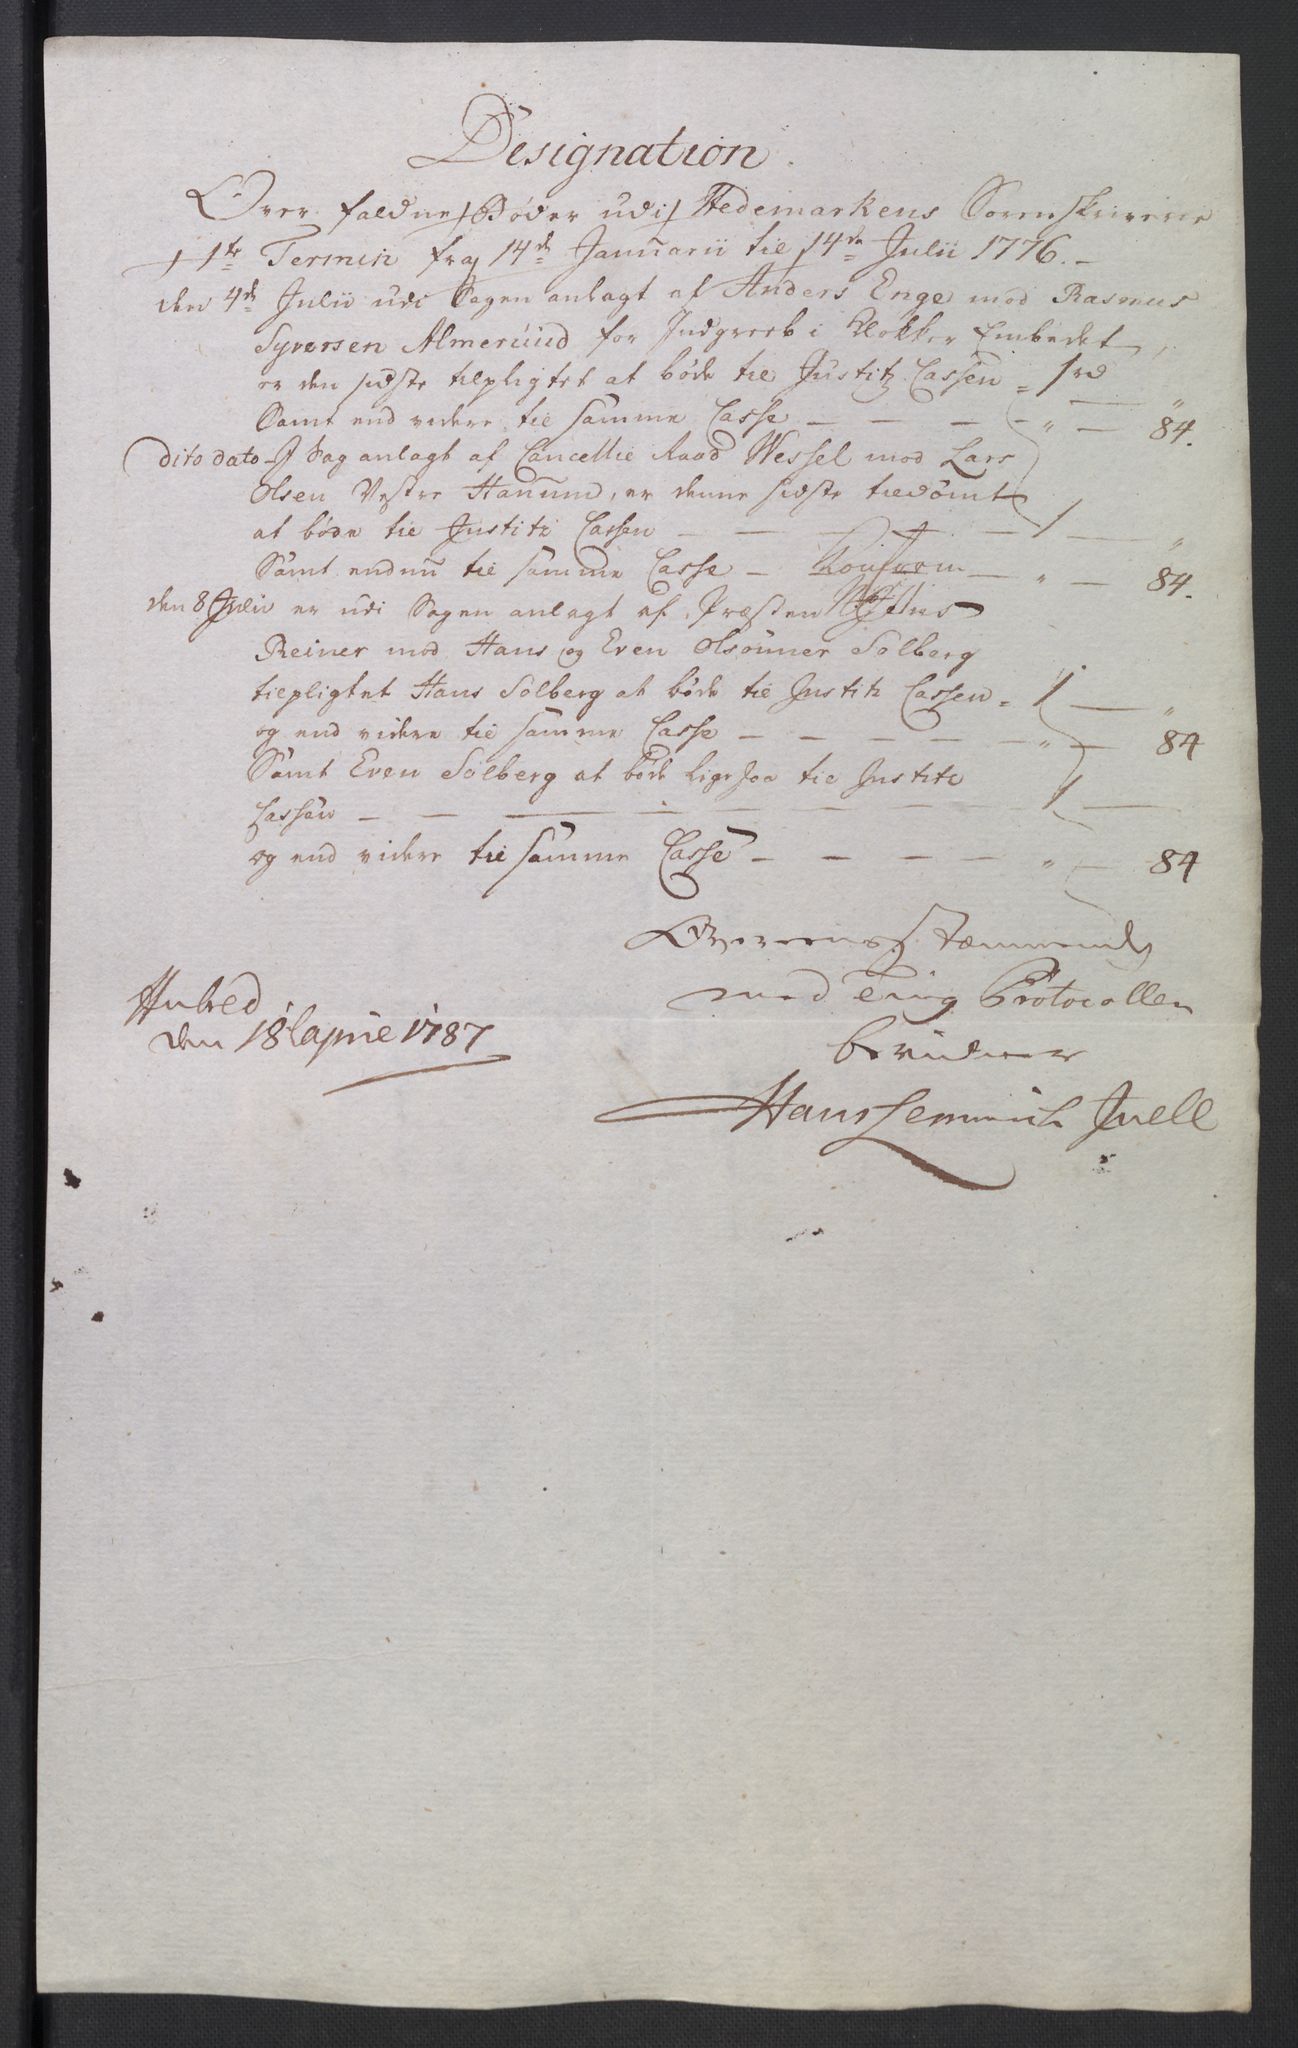 Designation
Over faldne Bøder udi Hedemarkens Sorenskriverie
1te Termin fra 14de Januarii til 14de Julii 1776.
den 4de Julii udi Sagen anlagt af Anders Enge mod Rasmus
Syversen Almerüud for Indgreeb i Klokker Embedet,
er den sidste tilpligtet at bøde til Justitz Cassen = 1 rd — „
Samt end videre til samme Casse — — — — „ — 84.
Dito dato I Sag anlagt af Cancellie Raad Wessel mod Lars
Olsen Vestre Hauum, er denne sidste tildømt
at bøde til Justitz Cassen — — — — 1 — „
Samt endnu til samme Casse — — „ — 84.
den 8 Julii er udi Sagen anlagt af Præsten Jens
Reiner mod Hans og Even Olsønner Solberg
tilpligtet Hans Solberg at bøde til Justitz Cassen = 1 — „
og end videre til samme Casse — — — — — „ — 84
Samt Even Solberg at bøde ligesaa til Justitz
Cassen — — — — — — — 1 —
og end videre til samme Casse — — — — „ — 84
Overeensstemmende
med Ting Protocollen
bevidner
Hans Lemmich Juell
den 18 April 1787